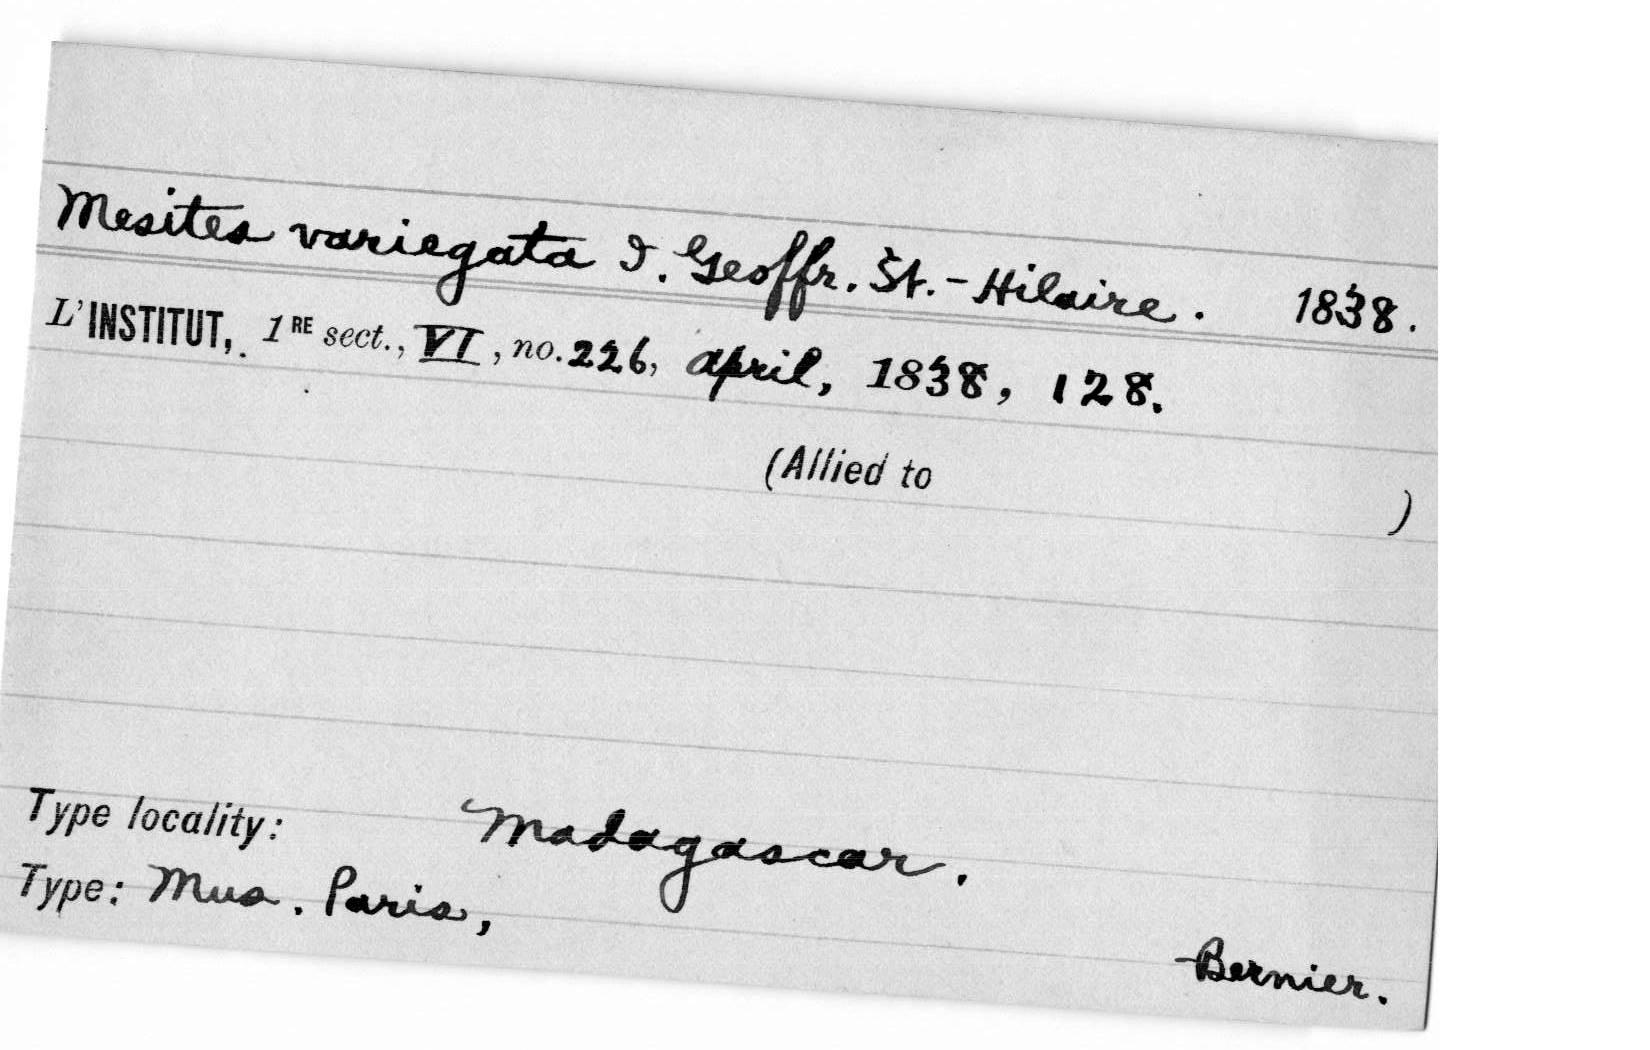 Mesites variegata I. Geoffr. St.-Hilaire. 1838.
L'INSTITUT, 1RE sect., VI, no. 226, April, 1838, 128.
(Allied to )
Type locality: Madagascar.
Type: Mus. Paris,
Bernier.